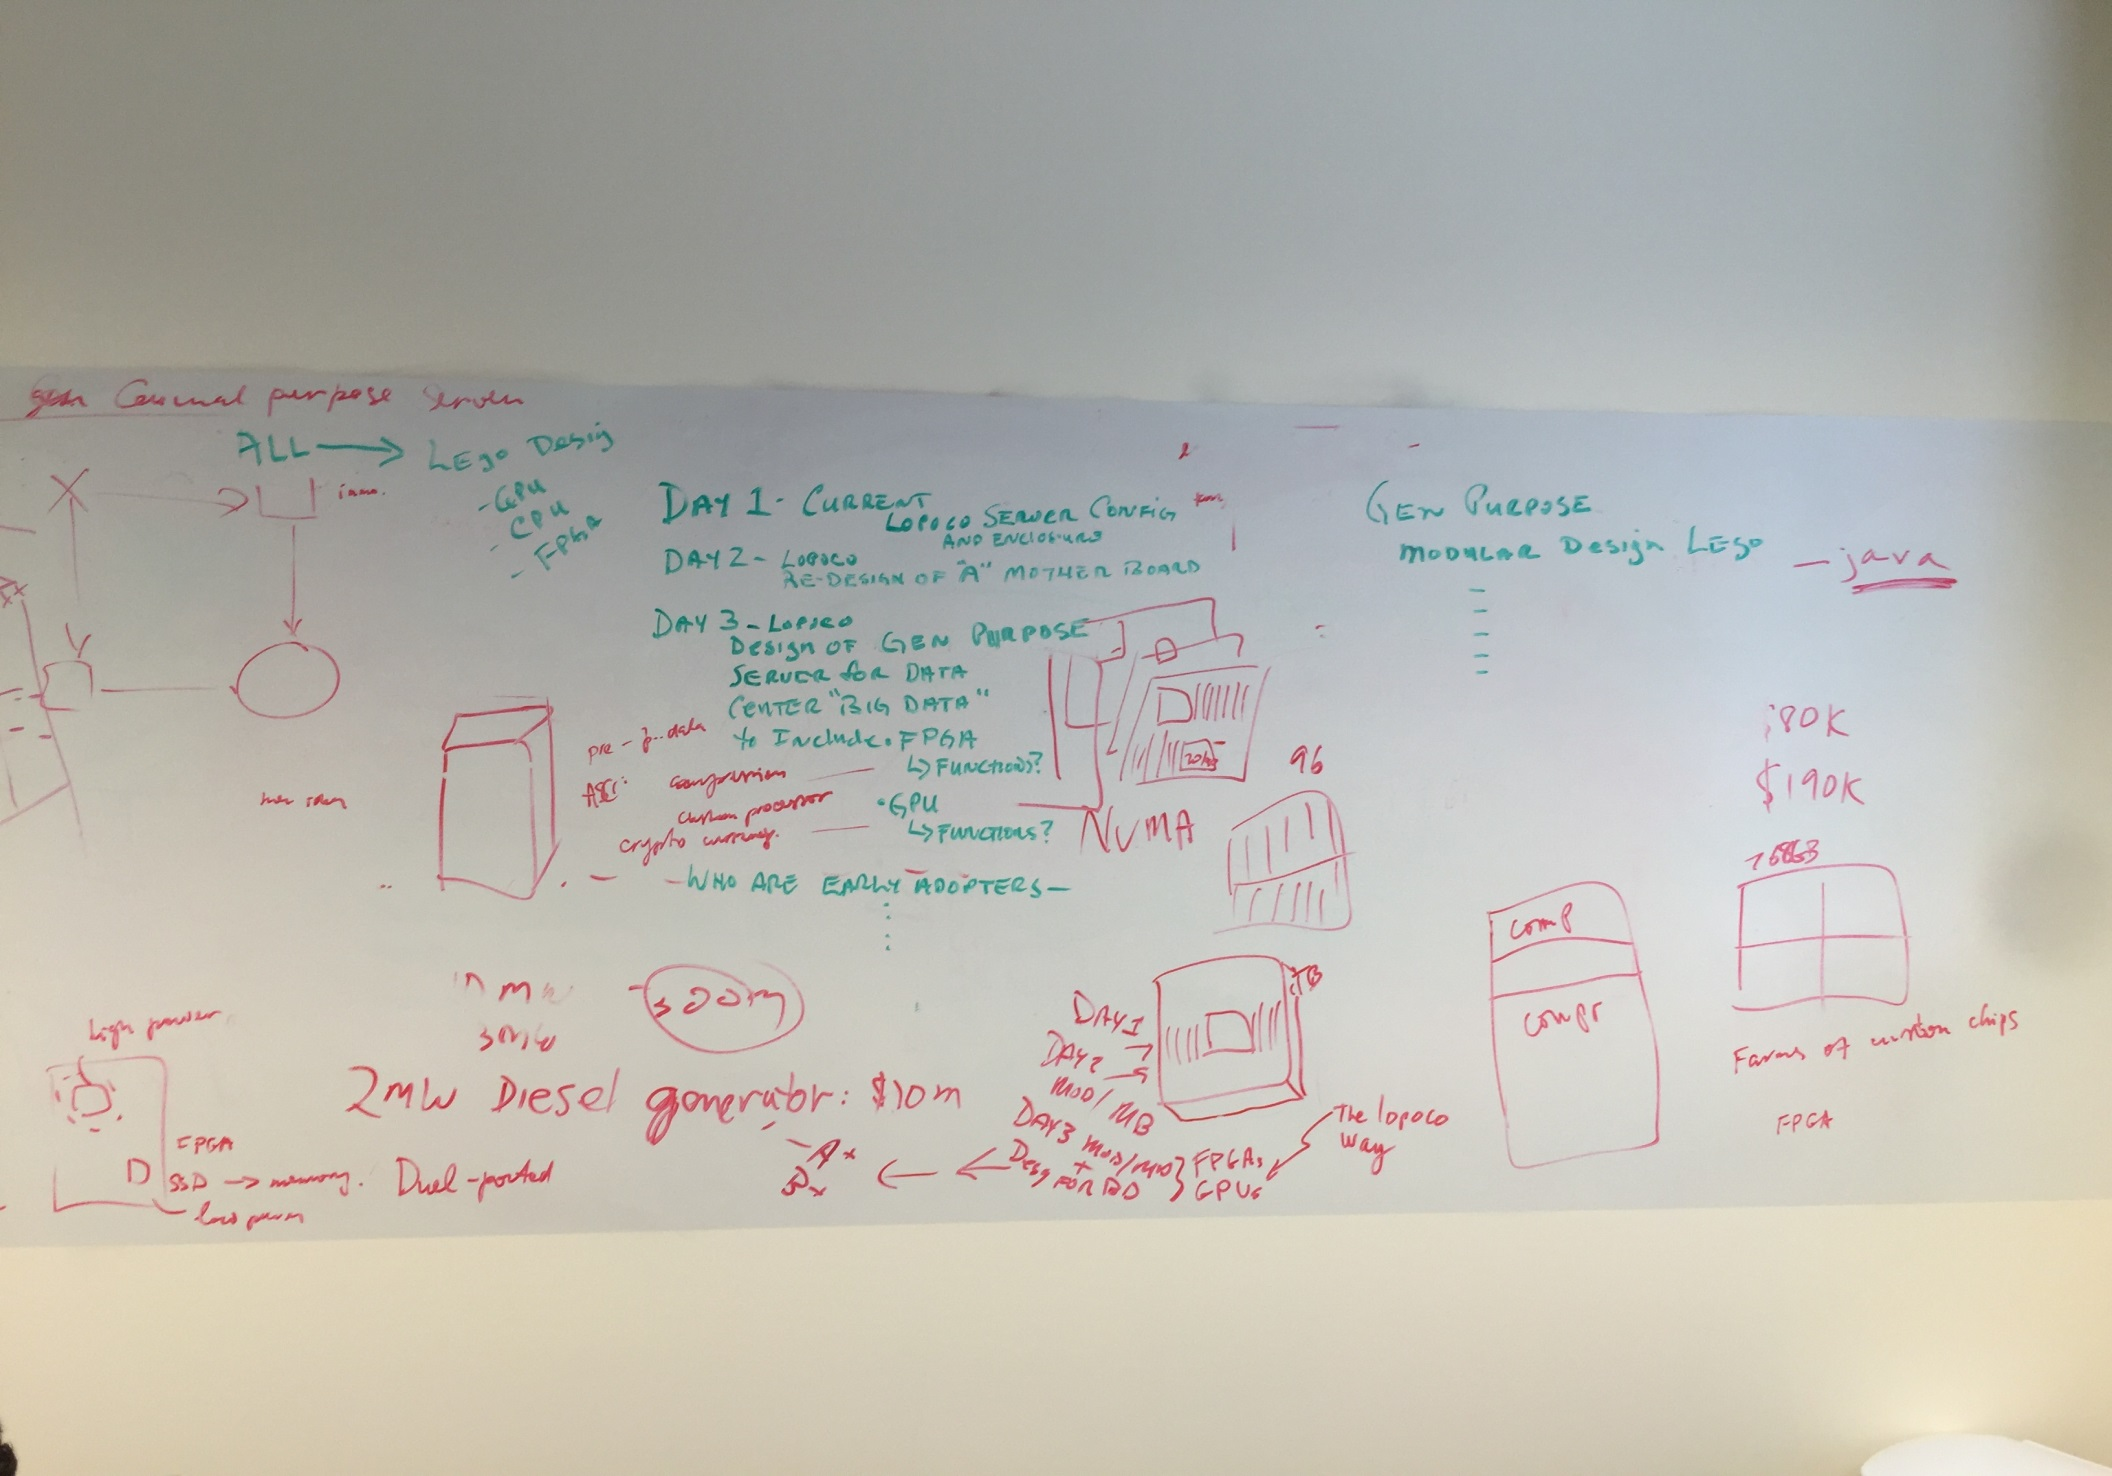 General purpose server
ALL → LEgo Design
- GPU
- CPU
- FPGA
DAY 1 - CURRENT
LOPOCO SERVER CONFIG
AND ENCLOSURE
DAY 2 - LOPOCO
RE-DESIGN OF "A" MOTHER BOARD
DAY 3 - LOPOCO
DESIGN OF GEN PURPOSE
SERVER FOR DATA
CENTER "BIG DATA"
to Include • FPGA
↳ FUNCTIONS?
• GPU
↳ FUNCTIONS?
- WHO ARE EARLY ADOPTERS -
data
compression
custom processor
crypto currency.
NUMA
96
GEN PURPOSE
MODULAR Design LEgo
- java
80K
$190K
COMP
compr
Farms of custom chips
FPGA
high power
FPGA
SSD → memory. Duel-ported
low power
3MW
300m
2MW Diesel generator: $10m
TB
DAY 1
DAY 2
MOD / MB
DAY 3 MOD / MB
+
FOR BD
FPGAs
GPUs
The lopoco
way